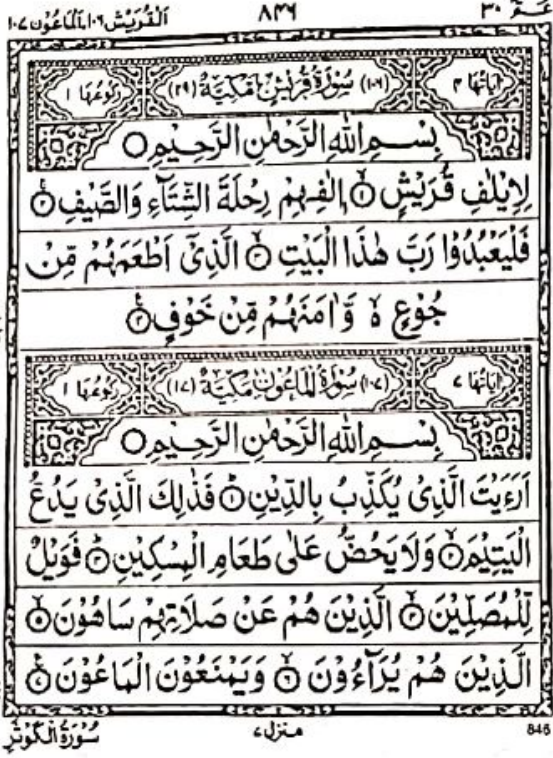 عـمّ ٣٠ ٨٤٦ القُرَيش ١٠٦، المَاعُون ١٠٧
اٰيَاتُهَا ٤ (١٠٦) سُوْرَةُ قُرَيْشٍ مَّكِّيَّةٌ (٢٩) رُكُوْعُهَا ١
بِسْمِ اللّٰهِ الرَّحْمٰنِ الرَّحِيْمِ ○
لِاِيْلٰفِ قُرَيْشٍ ۙ﴿١﴾ اٖلٰفِهِمْ رِحْلَةَ الشِّتَآءِ وَالصَّيْفِ ۚ﴿٢﴾
فَلْيَعْبُدُوْا رَبَّ هٰذَا الْبَيْتِ ۙ﴿٣﴾ الَّذِيْٓ اَطْعَمَهُمْ مِّنْ
جُوْعٍ ۙ وَّاٰمَنَهُمْ مِّنْ خَوْفٍ ﴿٤﴾
اٰيَاتُهَا ٧ (١٠٧) سُوْرَةُ الْمَاعُوْنِ مَكِّيَّةٌ (١٧) رُكُوْعُهَا ١
بِسْمِ اللّٰهِ الرَّحْمٰنِ الرَّحِيْمِ ○
اَرَءَيْتَ الَّذِيْ يُكَذِّبُ بِالدِّيْنِ ﴿١﴾ فَذٰلِكَ الَّذِيْ يَدُعُّ
الْيَتِيْمَ ۙ﴿٢﴾ وَلَا يَحُضُّ عَلٰى طَعَامِ الْمِسْكِيْنِ ﴿٣﴾ فَوَيْلٌ
لِّلْمُصَلِّيْنَ ۙ﴿٤﴾ الَّذِيْنَ هُمْ عَنْ صَلَاتِهِمْ سَاهُوْنَ ۙ﴿٥﴾
الَّذِيْنَ هُمْ يُرَآءُوْنَ ۙ﴿٦﴾ وَيَمْنَعُوْنَ الْمَاعُوْنَ ﴿٧﴾
846 منزل ٧ سُوْرَةُ الْكَوْثَرِ